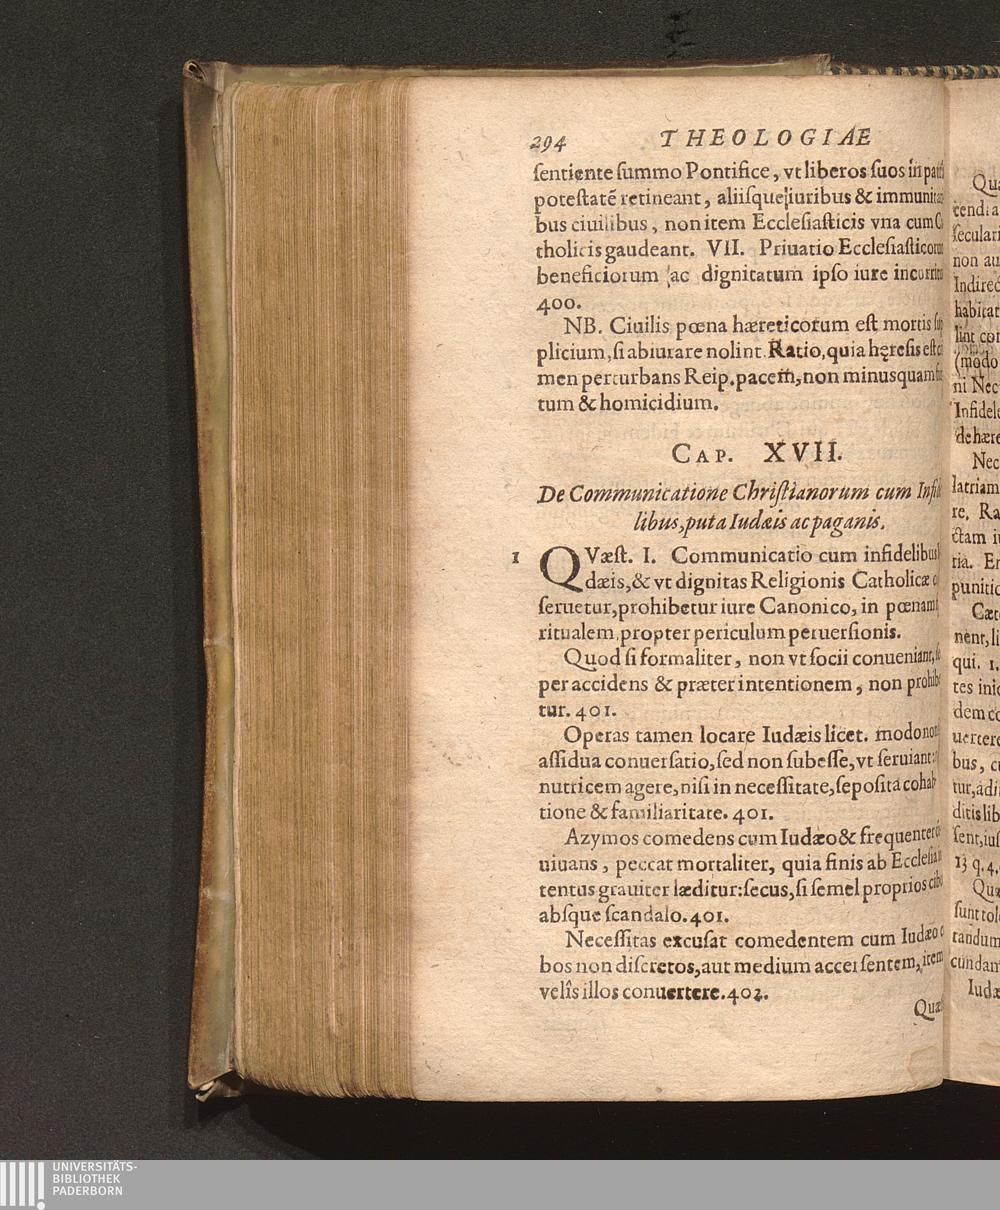 294 THEOLOGIAE
ſentiente ſummo Pontifice, vt liberos ſuos in
poteſtatē retineant, aliiſque iuribus & immunita
bus ciuilibus, non item Eccleſiaſticis vna cum C
tholicis gaudeant. VII. Priuatio Eccleſiaſticorum
beneficiorum ac dignitatum ipſo iure
400.
NB. Ciuilis pœna hæreticorum eſt mortis
plicium, ſi abiurare nolint. Ratio, quia hęreſis eſt
men perturbans Reip. pacem, non minus quam
tum & homicidium.
CAP. XVII.
De Communicatione Chriſtianorum cum Infi
libus, puta Iudæis ac paganis.
1 QVæſt. I. Communicatio cum infidelibus
dæis, & vt dignitas Religionis Catholicæ
ſeruetur, prohibetur iure Canonico, in pœnam
ritualem, propter periculum peruerſionis.
Quod ſi formaliter, non vt ſocii conueniant,
per accidens & præter intentionem, non prohibe
tur. 401.
Operas tamen locare Iudæis licet. modo non
aſſidua conuerſatio, ſed non ſubeſſe, vt ſeruiant:
nutricem agere, niſi in neceſſitate, ſepoſita cohab
tione & familiaritate. 401.
Azymos comedens cum Iudæo & frequenter
uiuans, peccat mortaliter, quia finis ab Eccleſia
tentus grauiter læditur: ſecus, ſi ſemel proprios
abſque ſcandalo. 401.
Neceſſitas excuſat comedentem cum Iudæo
bos non diſcretos, aut medium acceiſentem, item
velîs illos conuertere. 402.
Quæ
Qua
cend a
ſeculari
non au
Indirec
habitat
ſint con
(modo
ni Nec
Infidele
de hære
Nec
latriam
re. Ra
ctam i
ria. Er
punitio
Cæt
nent, li
qui. 1.
tes
dem co
uertere
bus, c
tur, adi
ditis lib
ſent, iuſ
13 q. 4.
Quæ
ſunt tol
randum
cundan
Iudæ
UNIVERSITÄTS-
BIBLIOTHEK
PADERBORN